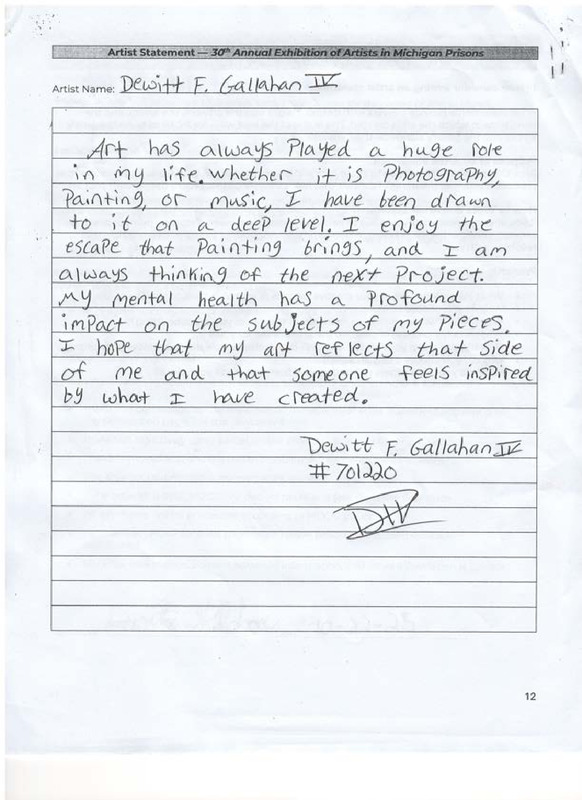 Artist Statement — 30th Annual Exhibition of Artists in Michigan Prisons
Artist Name: Dewitt F. Gallahan IV
Art has always Played a huge role
in my life. Whether it is Photography,
Painting, or music, I have been drawn
to it on a deep level. I enjoy the
escape that Painting brings, and I am
always thinking of the next Project.
My mental health has a Profound
impact on the subjects of my Pieces.
I hope that my art reflects that side
of me and that someone feels inspired
by what I have created.
Dewitt F. Gallahan IV
# 701220
12